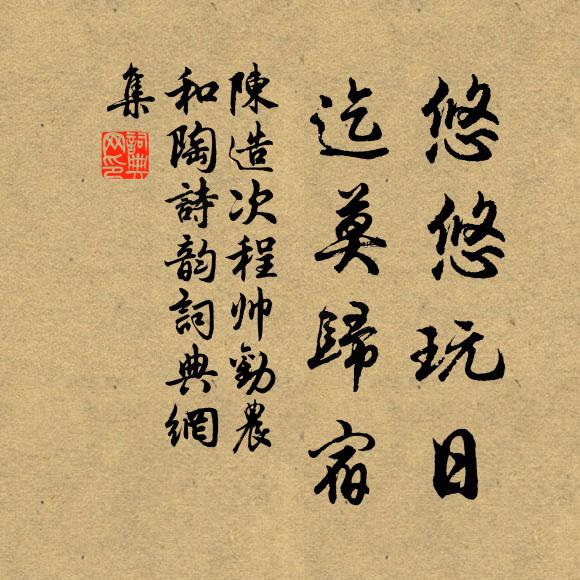 悠悠玩日
迄莫歸宿
陳造次程帅勸農
和陶詩韵詞典網
集
詞典
网印